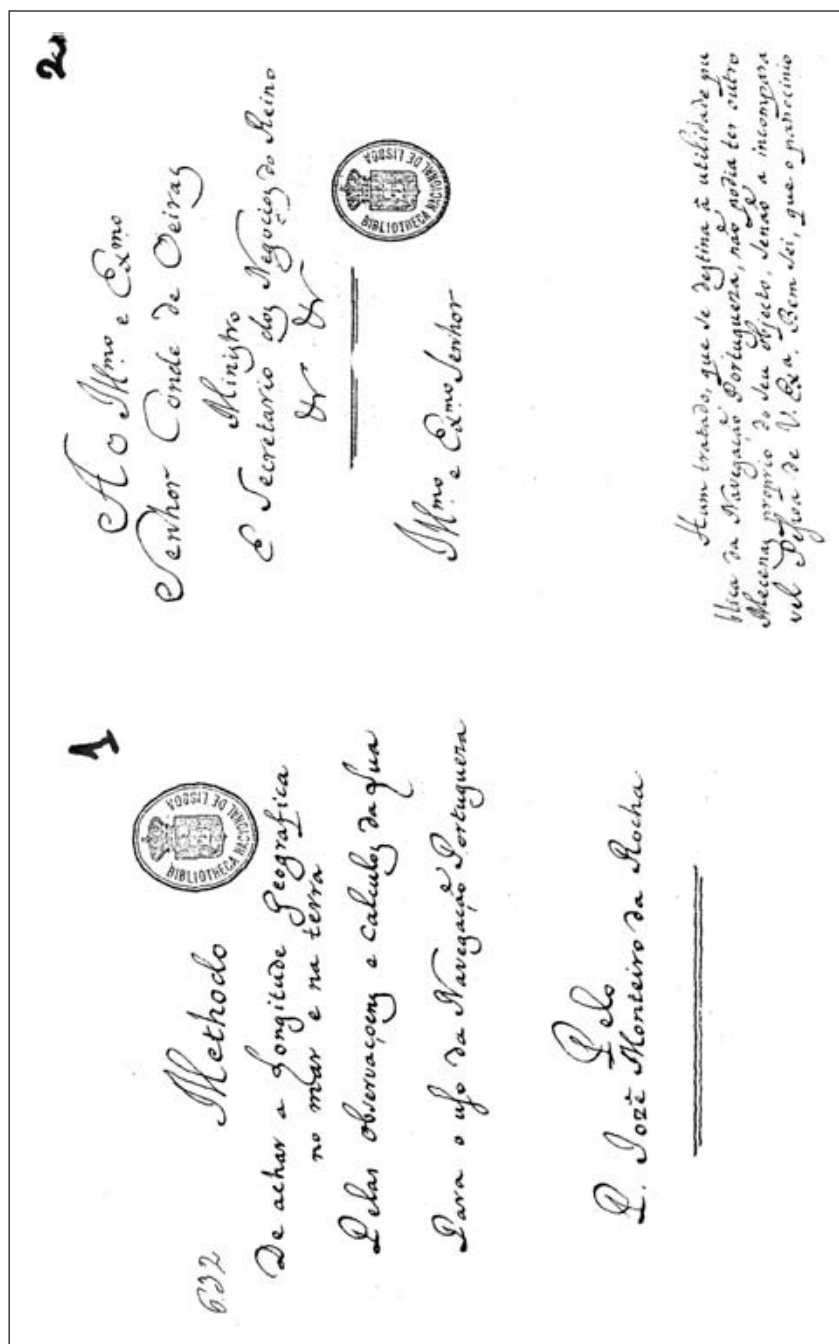 1
632
Methodo
De achar a Longitude Geografica
no mar e na terra
Pelas observaçoens e Calculos da Lua
Para o uso da Navegação Portugueza
Pelo
P. Jozè Monteiro da Rocha
BIBLIOTHECA NACIONAL DE LISBOA
2
Ao Ill.mo e Ex.mo
Senhor Conde de Oeiras
Ministro
E Secretario dos Negocios do Reino
&r &r
BIBLIOTHECA NACIONAL DE LISBOA
Ill.mo e Ex.mo Senhor
Hum tratado, que se destina à utilidade pu
blica da Navegação Portugueza, não podia ter outro
Mecenas proprio do seu objecto, senão a incompara
vel Pessoa de V. Ex.a. Bem sei, que o patrocinio